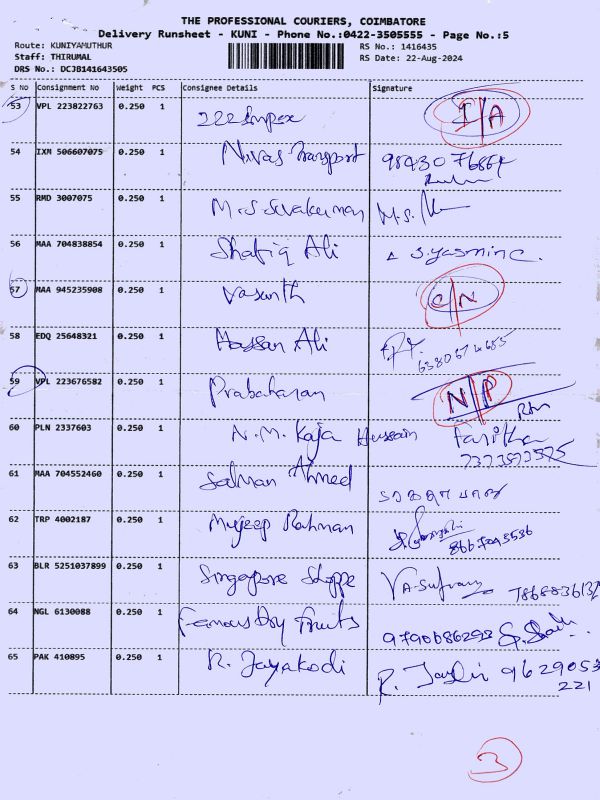 THE PROFESSIONAL COURIERS, COIMBATORE
Delivery Runsheet - KUNI - Phone No.:0422-3505555 - Page No.:5
Route: KUNIYAMUTHUR RS No.: 1416435
Staff: THIRUMAL RS Date: 22-Aug-2024
DRS No.: DCJB141643505
S No Consignment No Weight PCS Consignee Details Signature
53 VPL 223822763 0.250 1 222 Impex I/A
54 IXM 506607075 0.250 1 Nivas Transport 98430 76864
55 RMD 3007075 0.250 1 M.S. Sivakumar M.S.
56 MAA 704838854 0.250 1 Shafiq Ali S. Yasmine.
57 MAA 945235908 0.250 1 Vasanth C/N
58 EDQ 25648321 0.250 1 Hassan Ali
59 VPL 223676582 0.250 1 Prabakaran N/P
60 PLN 2337603 0.250 1 N.M. Kaja Hussain Faritha
61 MAA 704552460 0.250 1 Salman Ahmed
62 TRP 4002187 0.250 1 Mujeep Rahman 8667043536
63 BLR 5251037899 0.250 1 Singapore Shoppe
64 NGL 6130088 0.250 1 Famous Dry Fruits 9790686293
65 PAK 410895 0.250 1 R. Jayakodi R. 9629053
221
3